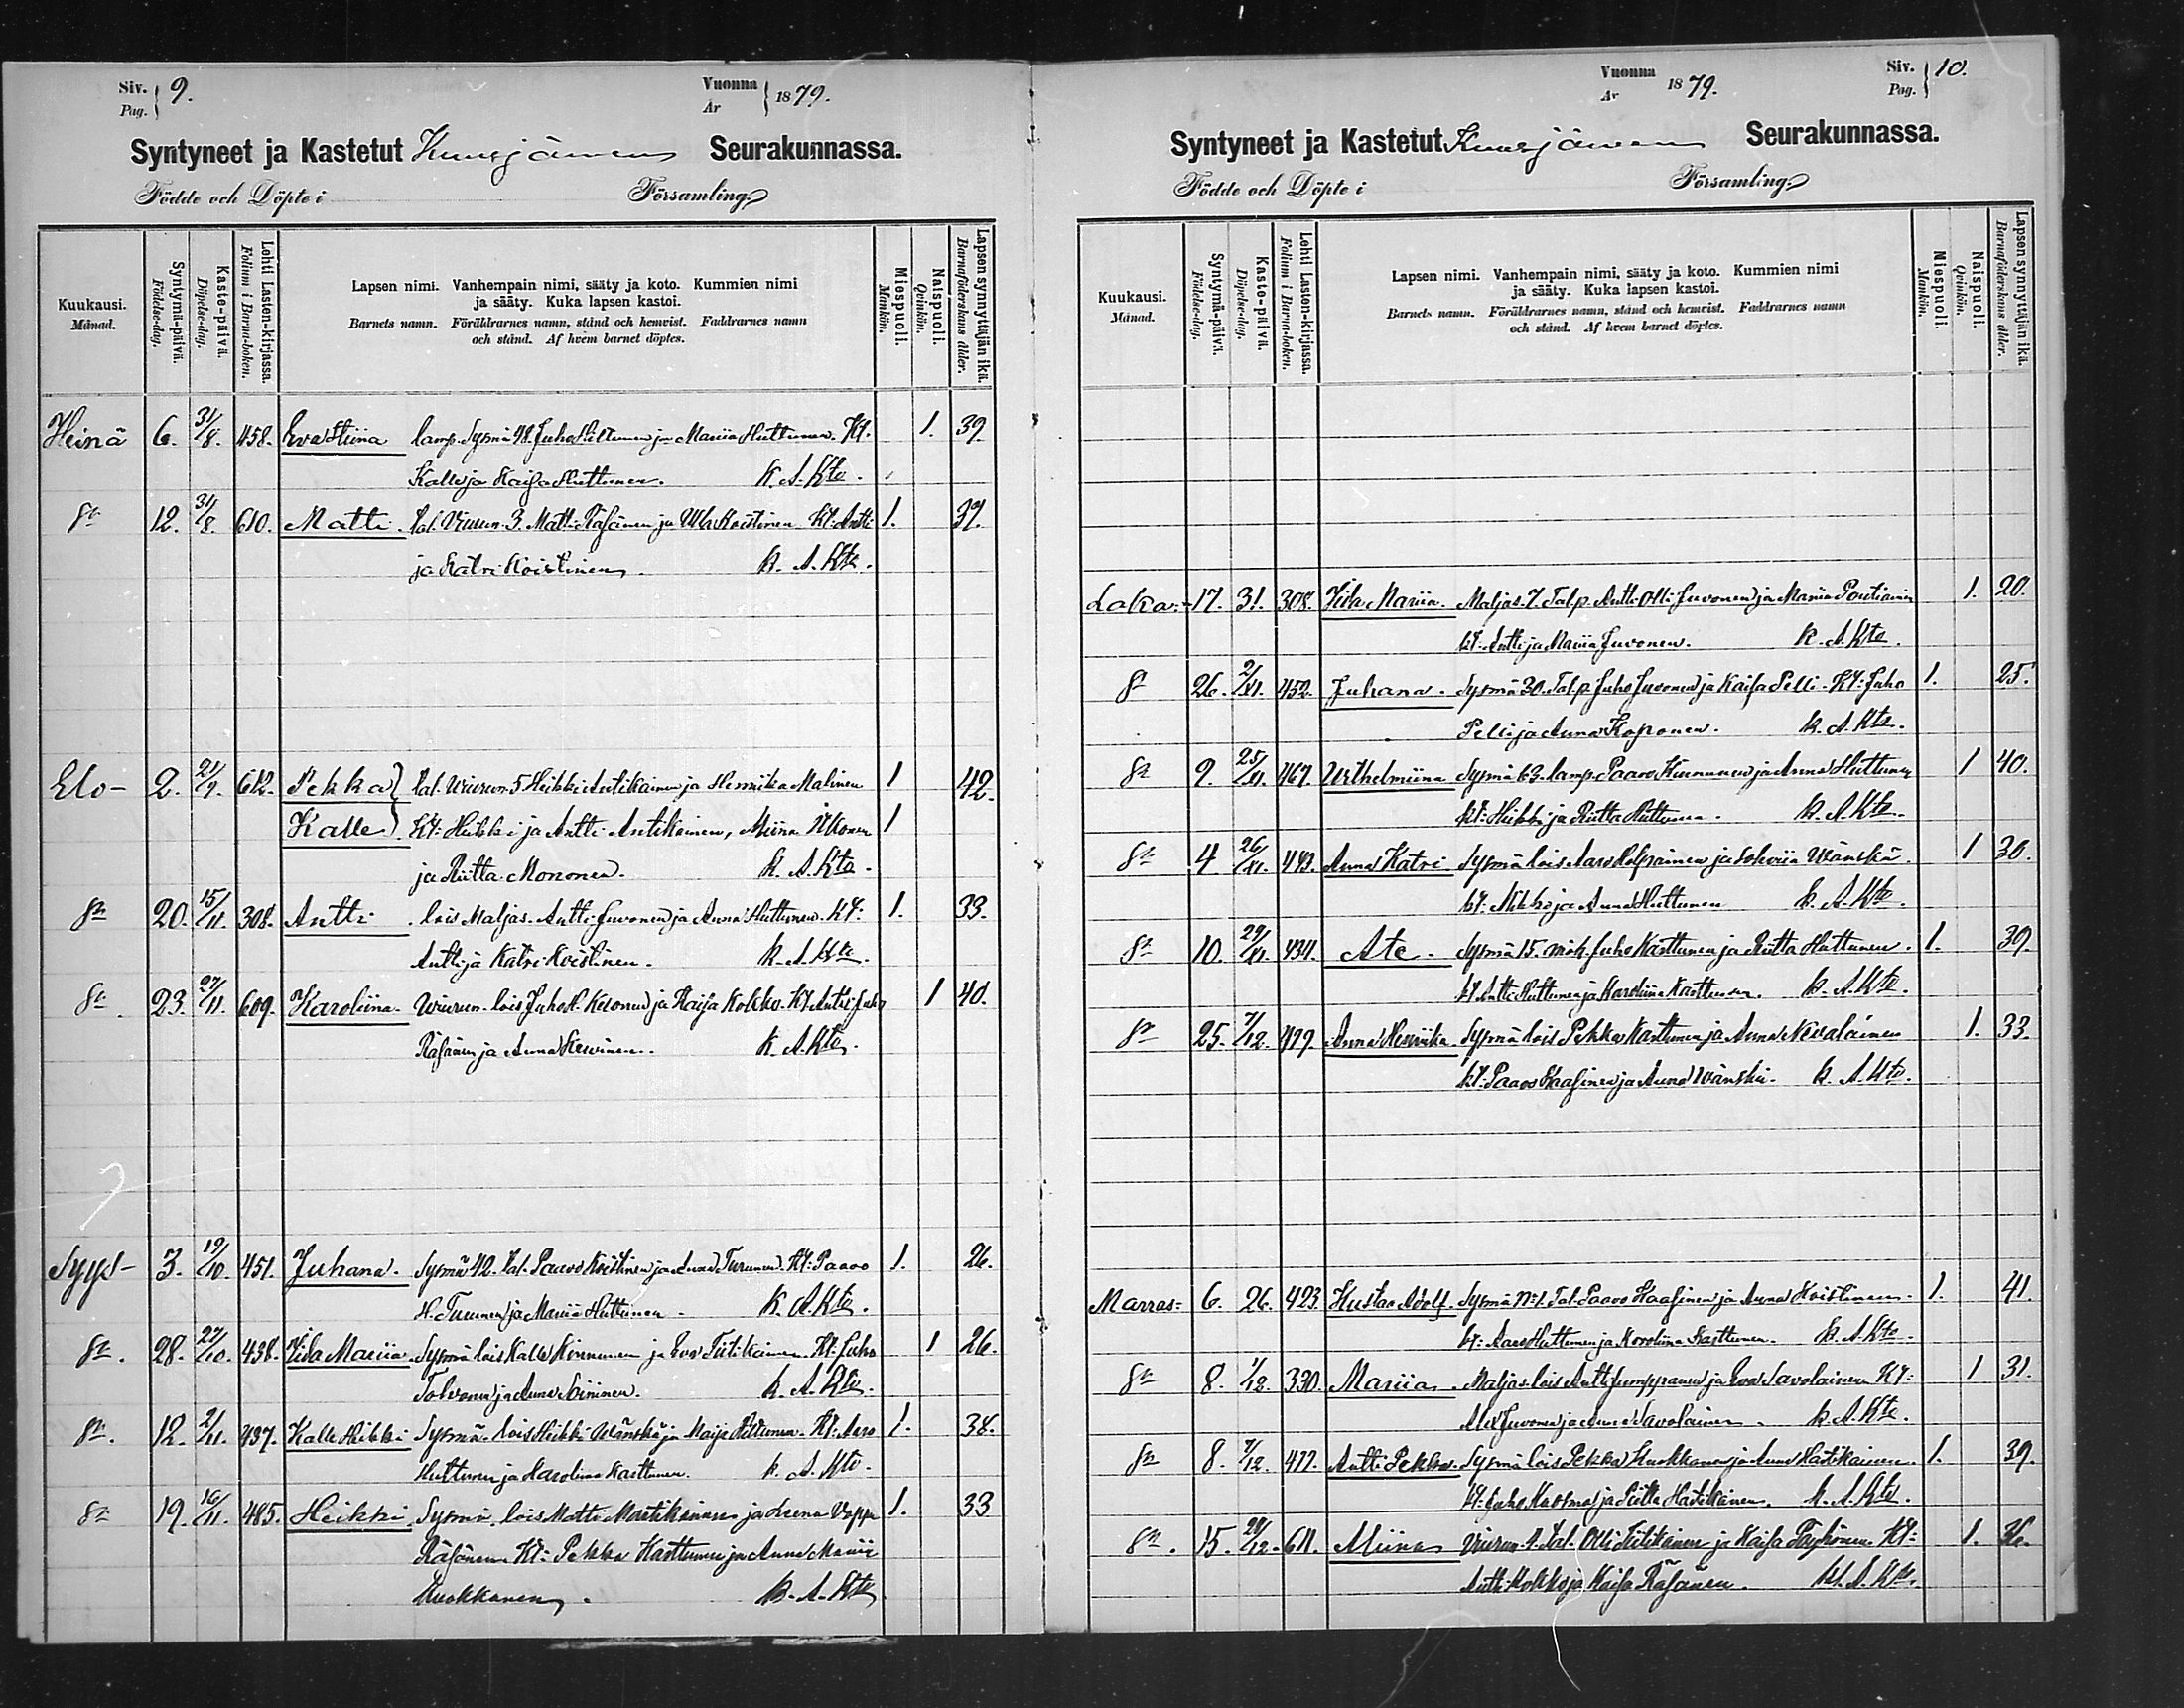 Siv. Pag. 9.
Vuonna År 1879.
Syntyneet ja Kastetut Kuusjärven Seurakunnassa.
Födde och Döpte i Församling.
Kuukausi. Månad.
Syntymä-päivä. Födelse-dag.
Kaste-päivä. Döpelse-dag.
Lehti Lasten-kirjassa. Folium i Barna-boken.
Lapsen nimi. Vanhempain nimi, sääty ja koto. Kummien nimi
ja sääty. Kuka lapsen kastoi.
Barnets namn. Föräldrarnes namn, stånd och hemvist. Faddrarnes namn
och stånd. Af hvem barnet döptes.
Miespuoli. Mankön.
Naispuoli. Qvinkön.
Lapsen synnyttäjän ikä. Barnaföderskans ålder.
Heinä 6. 31/8. 458. Eva Stiina lamp. Sysmä 48. Juho Hiltunen ja Mariia Huttunen. Kt. 1. 39.
Kalle ja Kaisa Huttunen. K. A. Kto.
12. 31/8. 610. Matti. tal. Viurun. 3. Matti Räsänen ja Ulla Koistinen Kt: Antti 1. 37.
ja Katri Koistinen. K. A. Kto.
Elo- 2. 21/9. 612. Pekka tal. Wiurun 5 Heikki Antikainen ja Henriika Malinen 1 42.
Kalle Kt: Heikki ja Antti Antikainen, Miina Ikonen 1
ja Riitta Mononen. K. A. Kto.
20. 15/11. 308. Antti lois Maljas. Antti Juvonen ja Anna Huttunen. Kt: 1. 33.
Antti ja Katri Koistinen. K. A. Kto.
23. 27/11. 609. Karoliina. Wiurun. lois Juho H. Kesonen ja Kaisa Kokko. Kt. Antti Juho 1 40.
Räsänen ja Anna Kervinen. K. A. Kto.
Syys- 3. 19/10. 451. Juhana. Sysmä 42. tal. Paavo Koistinen ja Anna Turunen. Kt: Paavo 1. 26.
H. Turunen ja Mariia Huttunen. K. A. Kto.
28. 27/10. 438. Iida Mariia. Sysmä lois Kalle Kinnunen ja Eva Tiitikainen. Kt: Juho 1 26.
Tolvanen ja Anna Soininen. K. A. Kto.
12. 2/11. 437. Kalle Heikki Sysmä. lois Heikki Wänskä ja Maija Huttunen. Kt: Aaro 1. 38.
Huttunen ja Karoliina Karttunen. K. A. Kto.
19. 16/11. 485. Heikki. Sysmä. lois Matti Martikainen ja Leena Vappu 1. 33
Räsänen Kt: Pekka Karttunen ja Anna Mariia
Kuokkanen. K. A. Kto.
Vuonna År 1879.
Siv. Pag. 10.
Syntyneet ja Kastetut Kuusjärven Seurakunnassa.
Födde och Döpte i Församling.
Kuukausi. Månad.
Syntymä-päivä. Födelse-dag.
Kaste-päivä. Döpelse-dag.
Lehti Lasten-kirjassa. Folium i Barna-boken.
Lapsen nimi. Vanhempain nimi, sääty ja koto. Kummien nimi
ja sääty. Kuka lapsen kastoi.
Barnets namn. Föräldrarnes namn, stånd och hemvist. Faddrarnes namn
och stånd. Af hvem barnet döptes.
Miespuoli. Mankön.
Naispuoli. Qvinkön.
Lapsen synnyttäjän ikä. Barnaföderskans ålder.
Loka:- 17. 31. 308. Iida Mariia. Maljas. 7. Tal.p. Antti Olli Juvonen ja Mariia Poutiainen 1. 20.
kt: Antti ja Mariia Juvonen. K. A. Kto.
26. 2/XI. 452. Juhana. Sysmä 30. Tal.p. Juho Juvonen ja Kaisa Pelli. Kt: Juho 1. 25.
Pelli ja Anna Koponen. K. A. Kto.
9. 25/XI. 467. Wilhelmiina Sysmä 63. lamp. Paavo Kinnunen ja Anna Huttunen 1 40.
kt: Heikki ja Riitta Huttunen. K. A. Kto.
4 26/XI. 443. Anna Katri. Sysmä lois Aaro Holopainen ja Sohviia Wänskä. 1 30.
kt: Mikko ja Anna Huttunen K. A. Kto.
10. 29/XI. 434. Ate. Sysmä 15. Juho Karttunen ja Riitta Huttunen. 1. 39.
kt. Antti Huttunen ja Karoliina Karttunen. K. A. Kto.
25. 7/12. 479. Anna Henriika. Sysmä lois Pekka Karttunen ja Anna Nevalainen 1. 33.
kt: Paavo Haasinen ja Anna Wänskä. K. A. Kto.
Marras:- 6. 26. 423. Kustaa Adolf. Sysmä No 1. Tal. Paavo Haasinen ja Anna Koistinen. 1. 41.
kt: Aaro Huttunen ja Karoliina Karttunen. K. A. Kto.
8. 1/12. 330. Mariia. Maljas. lois Antti Jumppanen ja Eva Savolainen Kt: 1 31.
Alex Juvonen ja Anna Savolainen. K. A. Kto.
8. 7/12. 477. Antti Pekka. Sysmä lois Pekka Kuokkanen ja Anna Hartikainen. 1. 39.
kt: Juho Kuosma ja Riitta Hartikainen. K. A. Kto.
15. 28/12. 611. Miina Viurun. 4. tal. Olli Tiitikainen ja Kaisa Törhönen. Kt: 1. 36.
Antti Kokko ja Kaisa Räsänen. K. A. Kto.